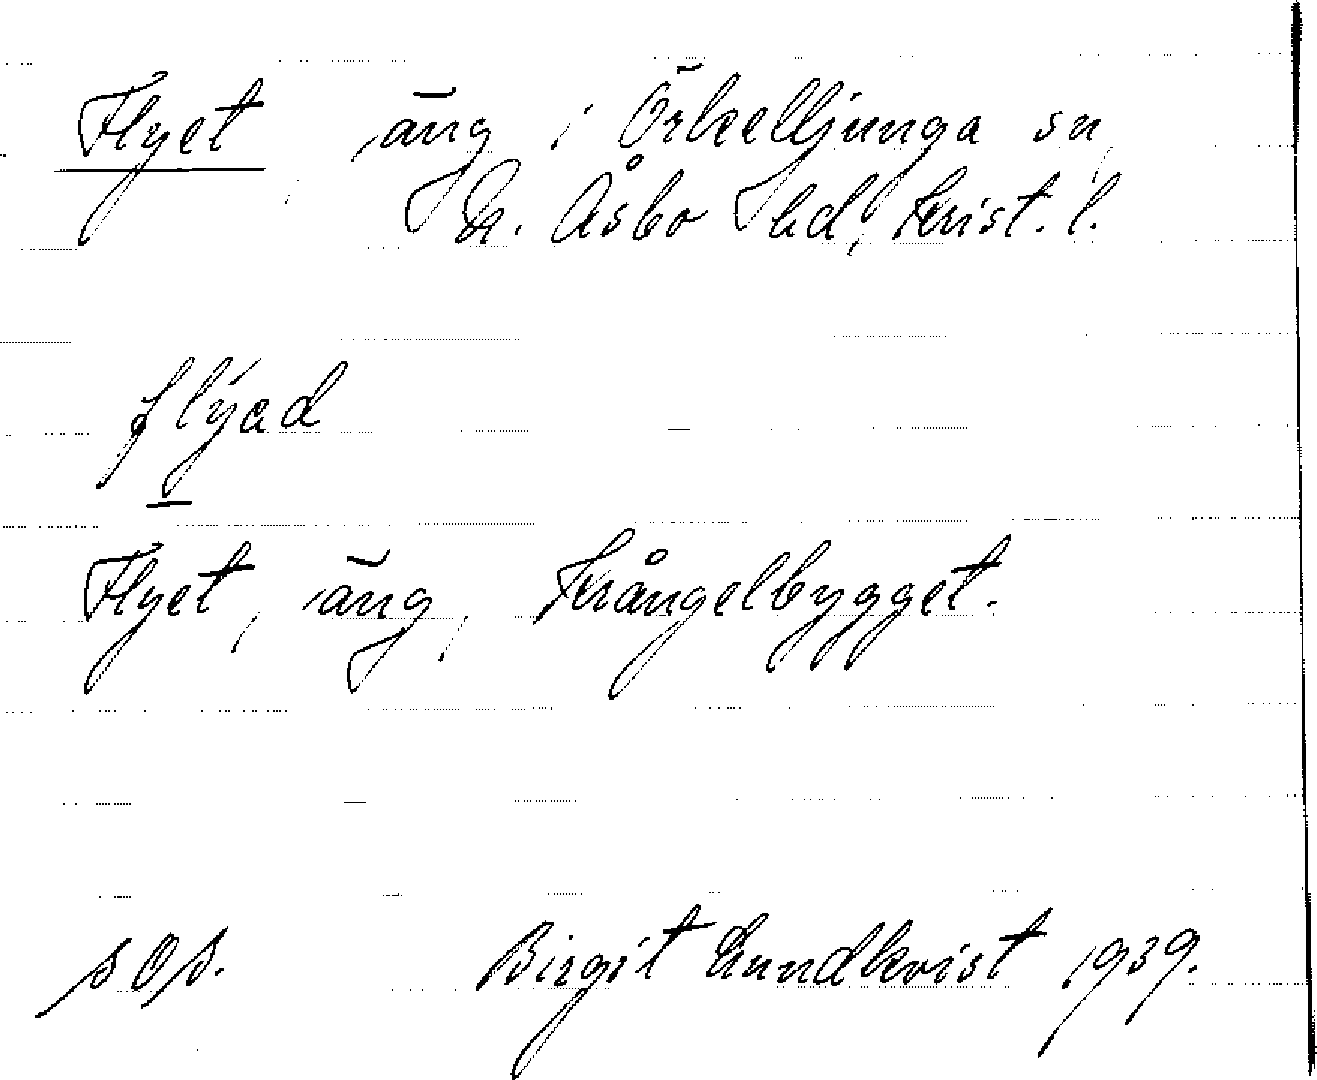 Flyet äng i Örkelljunga sn,
N. Åsbo hd, Krist. l.
flýad
Flyet, äng, Krångelbygget.
s O s.
Birgit Lundkvist 1939.